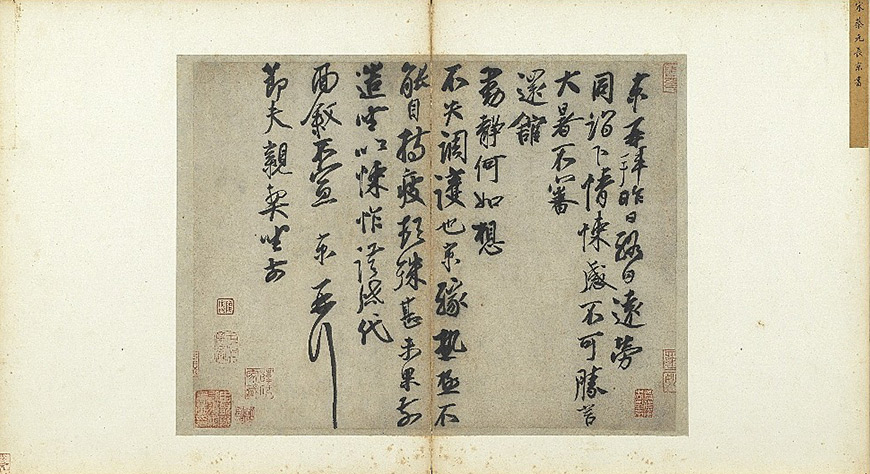 宋蔡元長京書
京再拜昨日終日遠勞
同詣下情悚感不可勝言
大暑不審
還館
動靜何如想
不失調護也京緣熱極不
能自持疲頓殊甚未果前
造坐次悚怍謹啟代
面敘不宣京再拜
節夫親契坐前